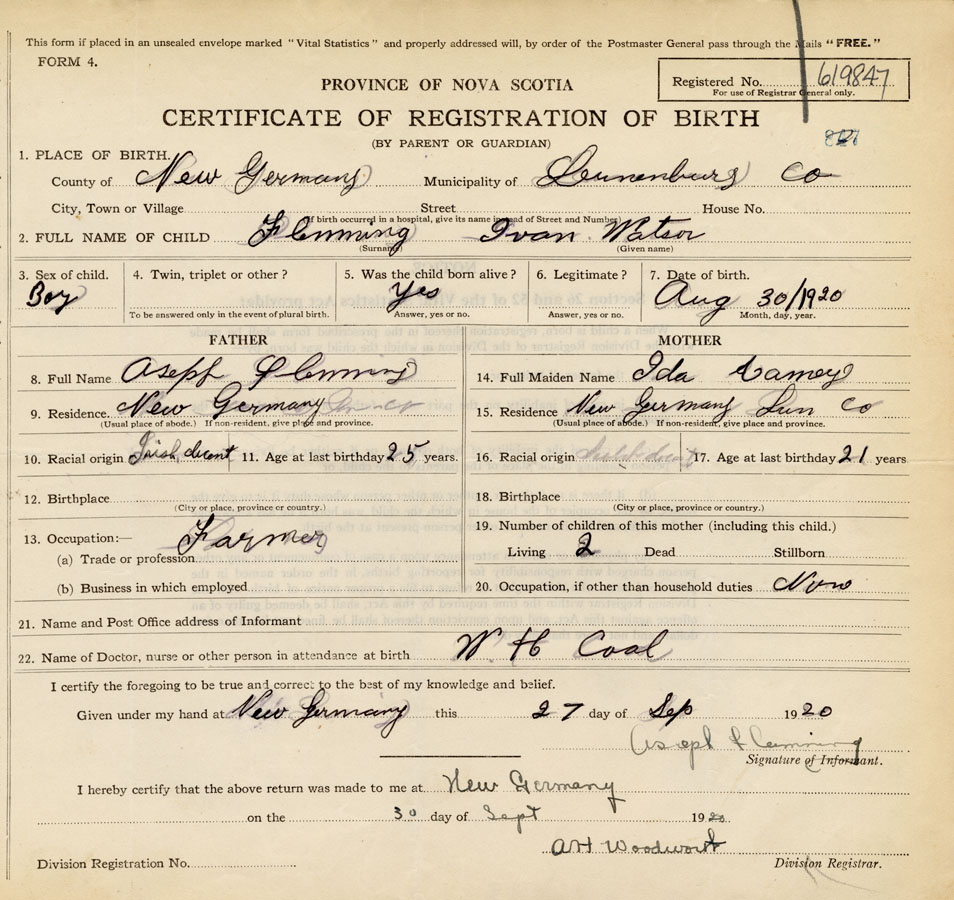 This form if placed in an unsealed envelope marked "Vital Statistics" and properly addressed will, by order of the Postmaster General pass through the Mails "FREE."
FORM 4.
Registered No. 619847
For use of Registrar General only.
PROVINCE OF NOVA SCOTIA
CERTIFICATE OF REGISTRATION OF BIRTH
(BY PARENT OR GUARDIAN)
1. PLACE OF BIRTH.
County of New Germany Municipality of Lunenburg Co
City, Town or Village Street House No.
(If birth occurred in a hospital, give its name instead of Street and Number)
2. FULL NAME OF CHILD Flemming Ivan Watson
(Surname) (Given name)
3. Sex of child. 4. Twin, triplet or other? 5. Was the child born alive? 6. Legitimate? 7. Date of birth.
Boy Yes Aug 30/1920
To be answered only in the event of plural birth. Answer, yes or no. Answer, yes or no. Month, day, year.
FATHER MOTHER
8. Full Name Aseph Flemming 14. Full Maiden Name Ida
9. Residence. New Germany Lun Co 15. Residence New Germany Lun Co
(Usual place of abode.) If non-resident, give place and province. (Usual place of abode.) If non-resident, give place and province.
10. Racial origin Irish decent 11. Age at last birthday 25 years. 16. Racial origin decent 17. Age at last birthday 21 years
12. Birthplace 18. Birthplace
(City or place, province or country.) (City or place, province or country.)
13. Occupation:— Farmer 19. Number of children of this mother (including this child.)
(a) Trade or profession Living 2 Dead Stillborn
(b) Business in which employed 20. Occupation, if other than household duties
21. Name and Post Office address of Informant
22. Name of Doctor, nurse or other person in attendance at birth W. H Coal
I certify the foregoing to be true and correct to the best of my knowledge and belief.
Given under my hand at New Germany this 27 day of Sep 1920
Aseph Flemming
Signature of Informant.
I hereby certify that the above return was made to me at New Germany
on the 30 day of Sept 1920
AH Woodworth
Division Registration No. Division Registrar.